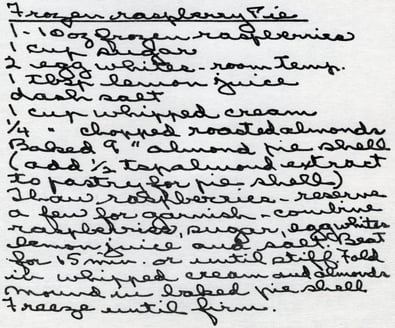 Frozen raspberry Pie
1-10oz frozen raspberries
1 cup sugar
2 egg whites - room temp.
1 tbsp lemon juice
dash salt
1 cup whipped cream
1/4 " chopped roasted almonds
Baked 9" almond pie shell
(add 1/2 tsp almond extract
to pastry for pie shells)
Thaw raspberries - reserve
a few for garnish - combine
raspberries, sugar, egg whites
lemon juice and salt. Beat
for 15 min. or until stiff. Fold
in whipped cream and almonds
mound in baked pie shell
Freeze until firm.